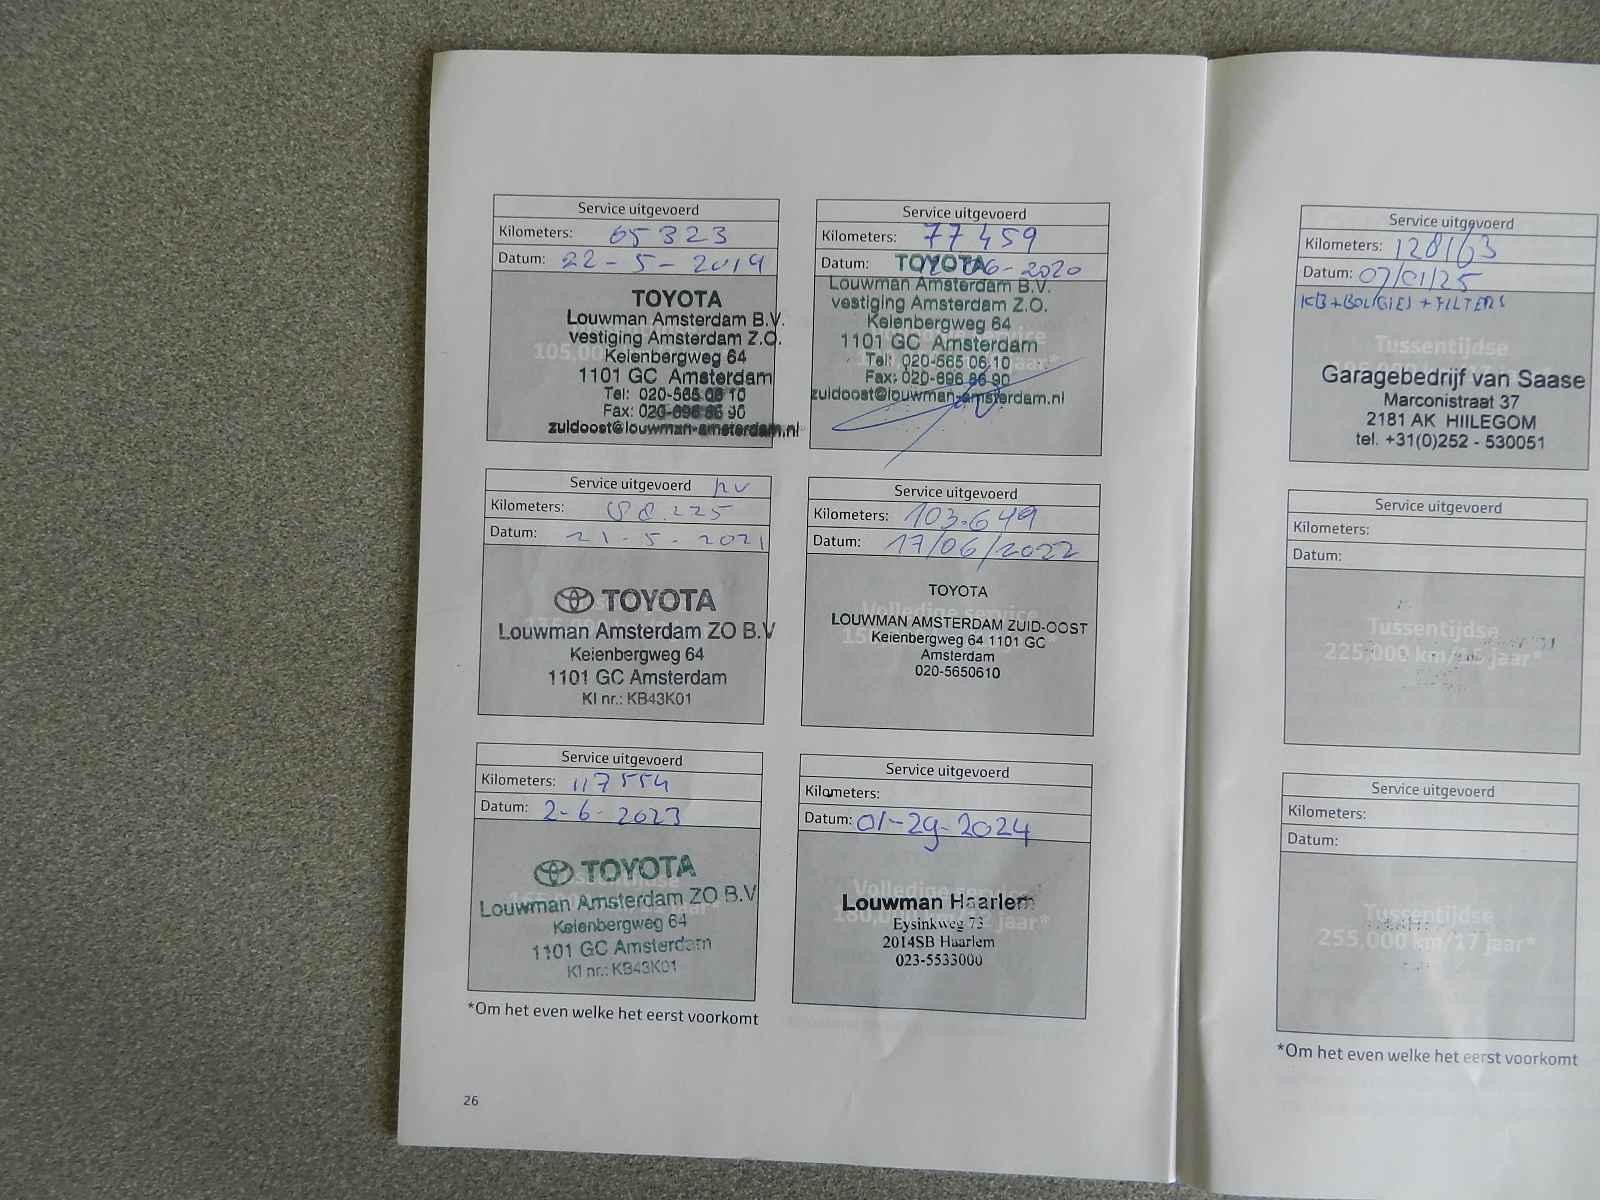 Service uitgevoerd
Kilometers: 65323
Datum: 22-5-2019
TOYOTA
Louwman Amsterdam B.V.
vestiging Amsterdam Z.O.
Keienbergweg 64
1101 GC Amsterdam
Tel: 020-565 06 10
Fax: 020-696 86 90
zuidoost@louwman-amsterdam.nl
Service uitgevoerd
Kilometers: 77459
Datum: 06-2020
TOYOTA
Louwman Amsterdam B.V.
vestiging Amsterdam Z.O.
Keienbergweg 64
1101 GC Amsterdam
Tel: 020-565 06 10
Fax: 020-696 86 90
zuidoost@louwman-amsterdam.nl
Service uitgevoerd
Kilometers: 88.225
Datum: 21-5-2021
TOYOTA
Louwman Amsterdam ZO B.V
Keienbergweg 64
1101 GC Amsterdam
KI nr.: KB43K01
Service uitgevoerd
Kilometers: 103.649
Datum: 17/06/2022
Volledige service
TOYOTA
LOUWMAN AMSTERDAM ZUID-OOST
Keienbergweg 64 1101 GC
Amsterdam
020-5650610
Service uitgevoerd
Kilometers: 117554
Datum: 2-6-2023
TOYOTA
Louwman Amsterdam ZO B.V
Keienbergweg 64
1101 GC Amsterdam
KI nr.: KB43K01
Service uitgevoerd
Kilometers:
Datum: 01-29-2024
Volledige service
180,000 km/12 jaar*
Louwman Haarlem
Eysinkweg 73
2014SB Haarlem
023-5533000
*Om het even welke het eerst voorkomt
26
Service uitgevoerd
Kilometers: 128163
Datum: 07/01/25
KB+BOUGIES+FILTERS
Tussentijdse
Garagebedrijf van Saase
Marconistraat 37
2181 AK HIILEGOM
tel. +31(0)252 - 530051
Service uitgevoerd
Kilometers:
Datum:
Tussentijdse
225,000 km/15 jaar*
Service uitgevoerd
Kilometers:
Datum:
Tussentijdse
255,000 km/17 jaar*
*Om het even welke het eerst voorkomt